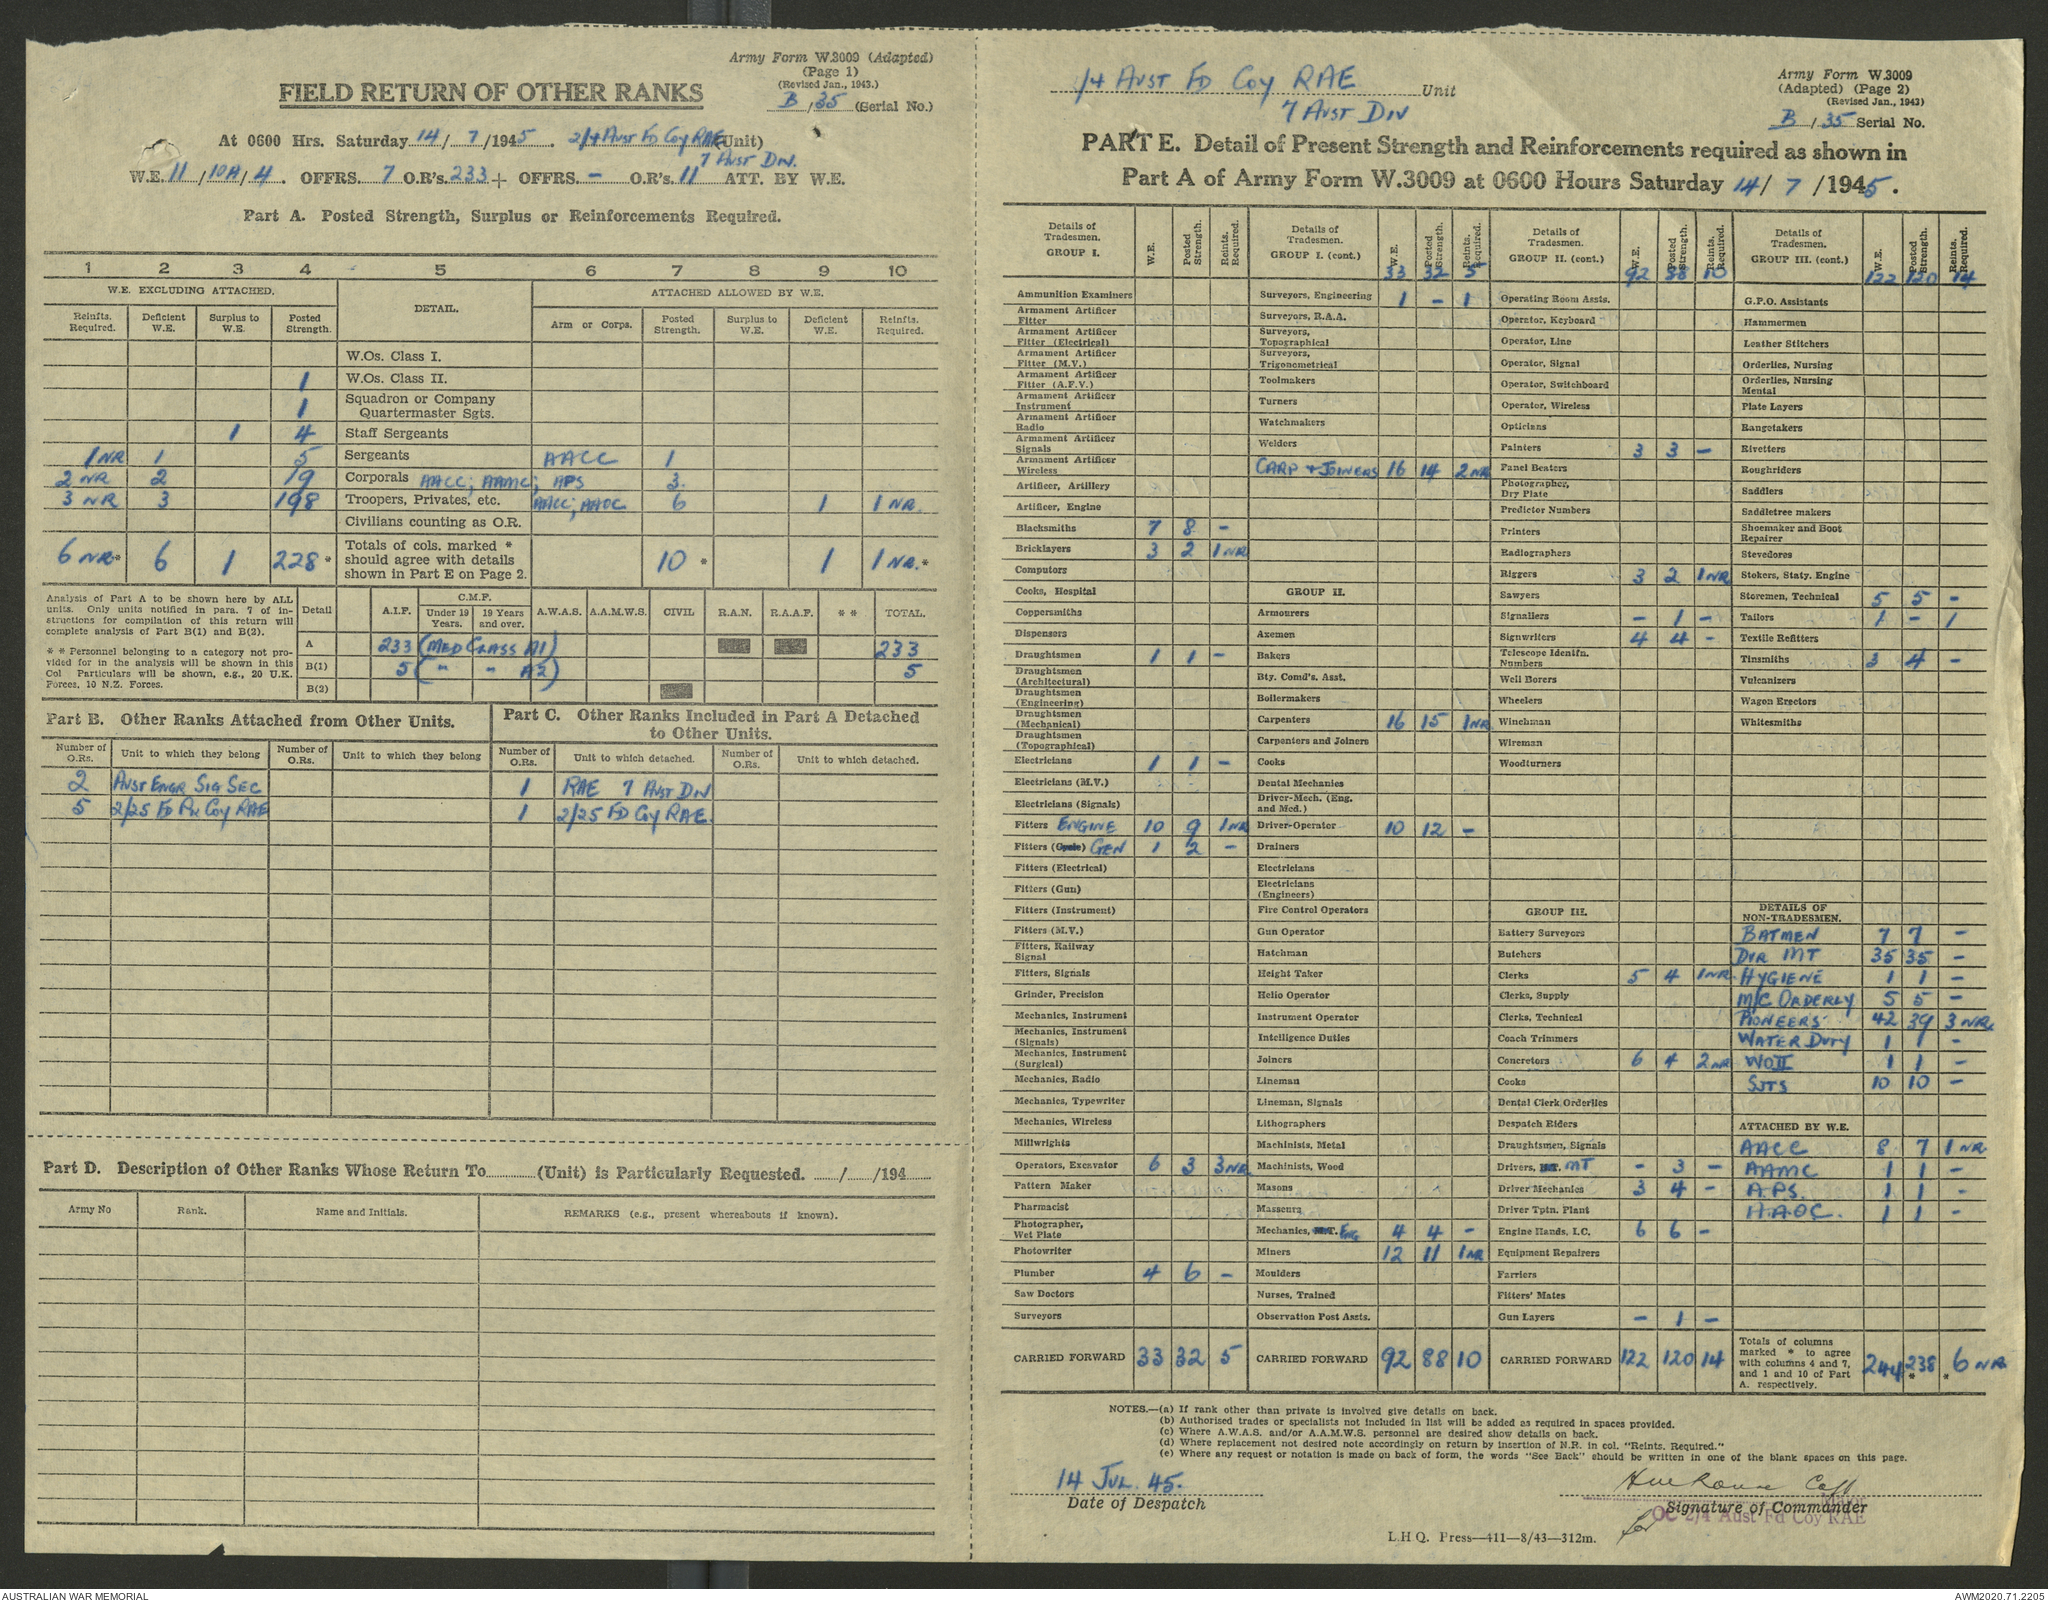 Army Form W.3009 (Adapted)
(Page 1)
(Revised Jan., 1943.)
B / 35 (Serial No.)
FIELD RETURN OF OTHER RANKS
At 0600 Hrs. Saturday 14 / 7 /1945. 2/4 Aust Fd Coy RAE (Unit)
7 Aust Div.
W.E. 11 / 10A / 4. OFFRS. 7 O.R's. 233 + OFFRS. – O.R's. 11 ATT. BY W.E.
Part A. Posted Strength, Surplus or Reinforcements Required.
1 2 3 4 5 6 7 8 9 10
W.E. EXCLUDING ATTACHED. DETAIL. ATTACHED ALLOWED BY W.E.
Reinfts. Required. Deficient W.E. Surplus to W.E. Posted Strength. Arm or Corps. Posted Strength. Surplus to W.E. Deficient W.E. Reinfts. Required.
W.Os. Class I.
1 W.Os. Class II.
1 Squadron or Company Quartermaster Sgts.
1 4 Staff Sergeants
1 NR 1 5 Sergeants AACC 1
2 NR 2 19 Corporals AACC; AAMC; APS 3.
3 NR 3 198 Troopers, Privates, etc. AACC; AAOC 6 1 1 NR
Civilians counting as O.R.
6 NR* 6 1 228* Totals of cols. marked * should agree with details shown in Part E on Page 2. 10 * 1 1 NR.*
Analysis of Part A to be shown here by ALL units. Only units notified in para. 7 of instructions for compilation of this return will complete analysis of Part B(1) and B(2).
* * Personnel belonging to a category not provided for in the analysis will be shown in this Col Particulars will be shown, e.g., 20 U.K. Forces, 10 N.Z. Forces.
Detail A.I.F. C.M.F. Under 19 Years. 19 Years and over. A.W.A.S. A.A.M.W.S. CIVIL R.A.N. R.A.A.F. * * TOTAL.
A 233 (MED CLASS A1) 233
B(1) 5 ( " " A2) 5
B(2)
Part B. Other Ranks Attached from Other Units.
Part C. Other Ranks Included in Part A Detached to Other Units.
Number of O.Rs. Unit to which they belong Number of O.Rs. Unit to which they belong Number of O.Rs. Unit to which detached. Number of O.Rs. Unit to which detached.
2 Aust Engr Sig Sec 1 RAE 7 Aust Div
5 2/25 Fd Pk Coy RAE 1 2/25 Fd Coy RAE.
Part D. Description of Other Ranks Whose Return To (Unit) is Particularly Requested. / /194
Army No Rank. Name and Initials. REMARKS (e.g., present whereabouts if known).
/4 Aust Fd Coy RAE Unit
7 Aust Div
Army Form W.3009
(Adapted) (Page 2)
(Revised Jan., 1943)
B / 35 Serial No.
PART E. Detail of Present Strength and Reinforcements required as shown in
Part A of Army Form W.3009 at 0600 Hours Saturday 14/ 7 /1945.
Details of Tradesmen. GROUP I. W.E. Posted Strength. Reints. Required.
Ammunition Examiners
Armament Artificer Fitter
Armament Artificer Fitter (Electrical)
Armament Artificer Fitter (M.V.)
Armament Artificer Fitter (A.F.V.)
Armament Artificer Instrument
Armament Artificer Radio
Armament Artificer Signals
Armament Artificer Wireless
Artificer, Artillery
Artificer, Engine
Blacksmiths 7 8 –
Bricklayers 3 2 1 NR
Computors
Cooks, Hospital
Coppersmiths
Dispensers
Draughtsmen 1 1 –
Draughtsmen (Architectural)
Draughtsmen (Engineering)
Draughtsmen (Mechanical)
Draughtsmen (Topographical)
Electricians 1 1 –
Electricians (M.V.)
Electricians (Signals)
Fitters ENGINE 10 9 1 NR
Fitters (Cycle) GEN 1 2 –
Fitters (Electrical)
Fitters (Gun)
Fitters (Instrument)
Fitters (M.V.)
Fitters, Railway Signal
Fitters, Signals
Grinder, Precision
Mechanics, Instrument
Mechanics, Instrument (Signals)
Mechanics, Instrument (Surgical)
Mechanics, Radio
Mechanics, Typewriter
Mechanics, Wireless
Millwrights
Operators, Excavator 6 3 3 NR
Pattern Maker
Pharmacist
Photographer, Wet Plate
Photowriter
Plumber 4 6 –
Saw Doctors
Surveyors
CARRIED FORWARD 33 32 5
Details of Tradesmen. GROUP I. (cont.) W.E. Posted Strength. Reints. Required.
33 32 5
Surveyors, Engineering 1 – 1
Surveyors, R.A.A.
Surveyors, Topographical
Surveyors, Trigonometrical
Toolmakers
Turners
Watchmakers
Welders
CARP & JOINERS 16 14 2 NR
GROUP II.
Armourers
Axemen
Bakers
Bty. Comd's. Asst.
Boilermakers
Carpenters 16 15 1 NR
Carpenters and Joiners
Cooks
Dental Mechanics
Driver-Mech. (Eng. and Med.)
Driver-Operator 10 12 –
Drainers
Electricians
Electricians (Engineers)
Fire Control Operators
Gun Operator
Hatchman
Height Taker
Helio Operator
Instrument Operator
Intelligence Duties
Joiners
Lineman
Lineman, Signals
Lithographers
Machinists, Metal
Machinists, Wood
Masons
Masseurs
Mechanics, M.T. ENG 4 4 –
Miners 12 11 1 NR
Moulders
Nurses, Trained
Observation Post Assts.
CARRIED FORWARD 92 88 10
Details of Tradesmen. GROUP II. (cont.) W.E. Posted Strength. Reints. Required.
92 88 10
Operating Room Assts.
Operator, Keyboard
Operator, Line
Operator, Signal
Operator, Switchboard
Operator, Wireless
Opticians
Painters 3 3 –
Panel Beaters
Photographer, Dry Plate
Predictor Numbers
Printers
Radiographers
Riggers 3 2 1 NR
Sawyers
Signallers – 1 –
Signwriters 4 4 –
Telescope Identfn. Numbers
Well Borers
Wheelers
Winchman
Wireman
Woodturners
GROUP III.
Battery Surveyors
Butchers
Clerks 5 4 1 NR
Clerks, Supply
Clerks, Technical
Coach Trimmers
Concretors 6 4 2 NR
Cooks
Dental Clerk Orderlies
Despatch Riders
Draughtsmen, Signals
Drivers, MT – 3 –
Driver Mechanics 3 4 –
Driver Tptn. Plant
Engine Hands, I.C. 6 6 –
Equipment Repairers
Farriers
Fitters' Mates
Gun Layers – 1 –
CARRIED FORWARD 122 120 14
Details of Tradesmen. GROUP III. (cont.) W.E. Posted Strength. Reints. Required.
122 120 14
G.P.O. Assistants
Hammermen
Leather Stitchers
Orderlies, Nursing
Orderlies, Nursing Mental
Plate Layers
Rangetakers
Rivetters
Roughriders
Saddlers
Saddletree makers
Shoemaker and Boot Repairer
Stevedores
Stokers, Staty. Engine
Storemen, Technical 5 5 –
Tailors 1 – 1
Textile Refitters
Tinsmiths 3 4 –
Vulcanizers
Wagon Erectors
Whitesmiths
DETAILS OF NON-TRADESMEN.
BATMEN 7 7 –
DVR MT 35 35 –
HYGIENE 1 1 –
M/C ORDERLY 5 5 –
PIONEERS 42 39 3 NR.
WATER DUTY 1 1 –
WOII 1 1 –
SJTS 10 10 –
ATTACHED BY W.E.
AACC 8 7 1 NR
AAMC 1 1 –
A.P.S. 1 1 –
A.A.O.C. 1 1 –
Totals of columns marked * to agree with columns 4 and 7, and 1 and 10 of Part A. respectively. 244 238 * * 6 NR
NOTES.—(a) If rank other than private is involved give details on back.
(b) Authorised trades or specialists not included in list will be added as required in spaces provided.
(c) Where A.W.A.S. and/or A.A.M.W.S. personnel are desired show details on back.
(d) Where replacement not desired note accordingly on return by insertion of N.R. in col. "Reints. Required."
(e) Where any request or notation is made on back of form, the words "See Back" should be written in one of the blank spaces on this page.
14 JUL. 45.
Date of Despatch
Capt
Signature of Commander
for
Major
OC 2/4 Aust Fd Coy RAE
L.H.Q. Press—411—8/43—312m.
AUSTRALIAN WAR MEMORIAL
AWM2020.71.2205